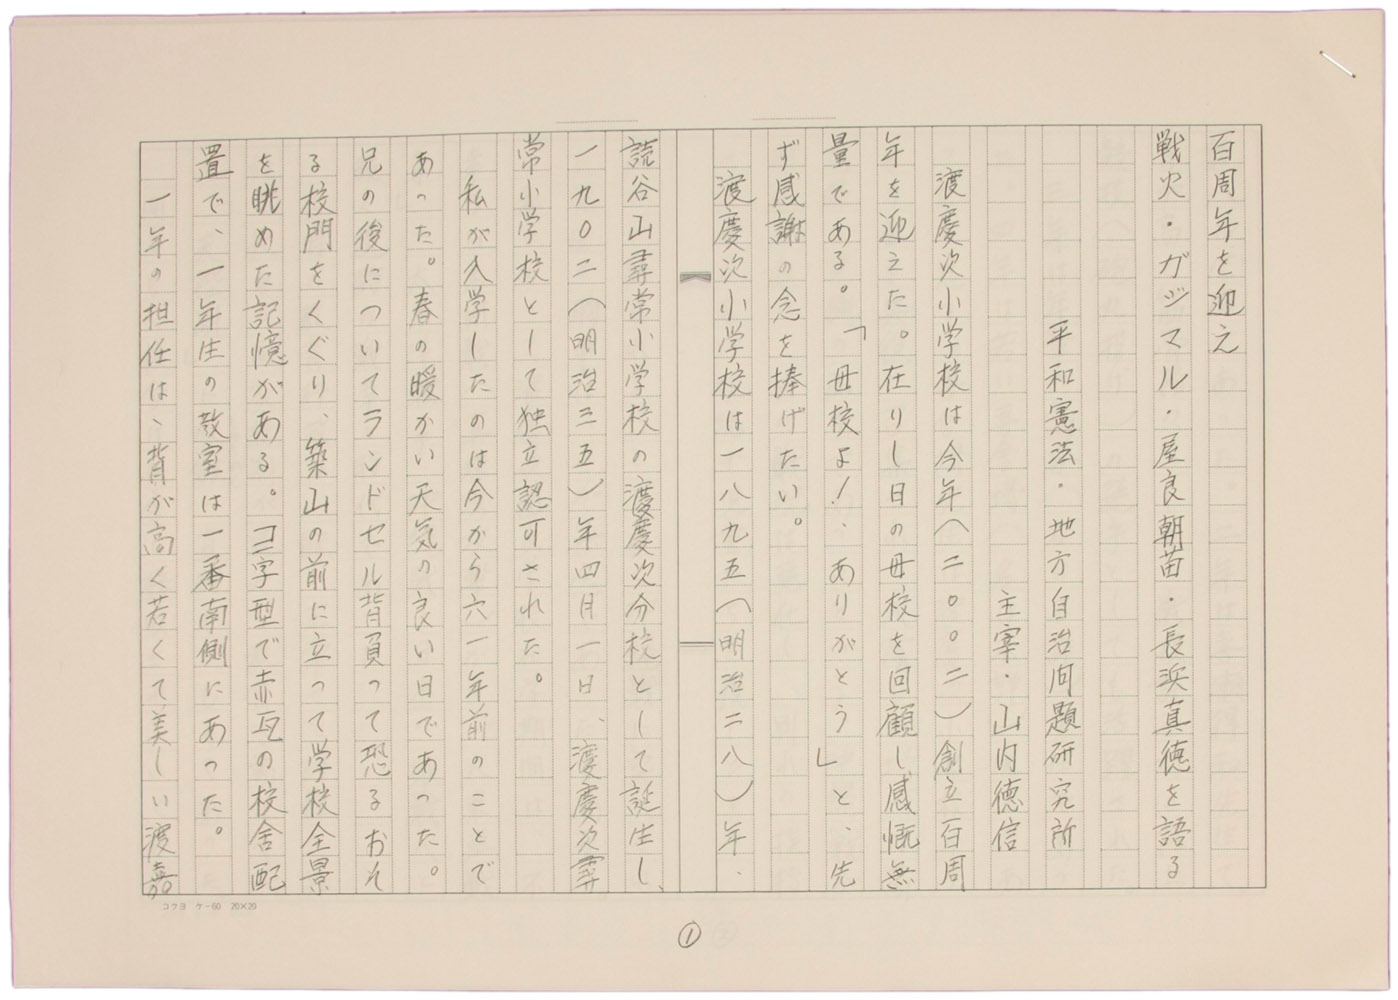 百周年を迎え
戦火・ガジマル・屋良朝苗・長浜真徳を語る
平和憲法・地方自治问題研究所
主宰・山内徳信
渡慶次小学校は今年(二〇〇二)創立百周
年を迎えた。在りし日の母校を回顧し感慨無
量である。「母校よ!、ありがとう」と、先
ず感謝の念を捧げたい。
渡慶次小学校は一八九五(明治二八)年、
読谷山尋常小学校の渡慶次分校として誕生し、
一九〇二(明治三五)年四月一日、渡慶次尋
常小学校として独立認可された。
私が入学したのは今から六一年前のことで
あった。春の暖かい天気の良い日であった。
兄の後についてランドセル背負って恐るおそ
る校門をくぐり、築山の前に立って学校全景
を眺めた記憶がある。コ字型で赤瓦の校舎配
置で、一年生の教室は一番南側にあった。
一年の担任は、背が高く若くて美しい渡嘉
コクヨ ケー60 20×20
①